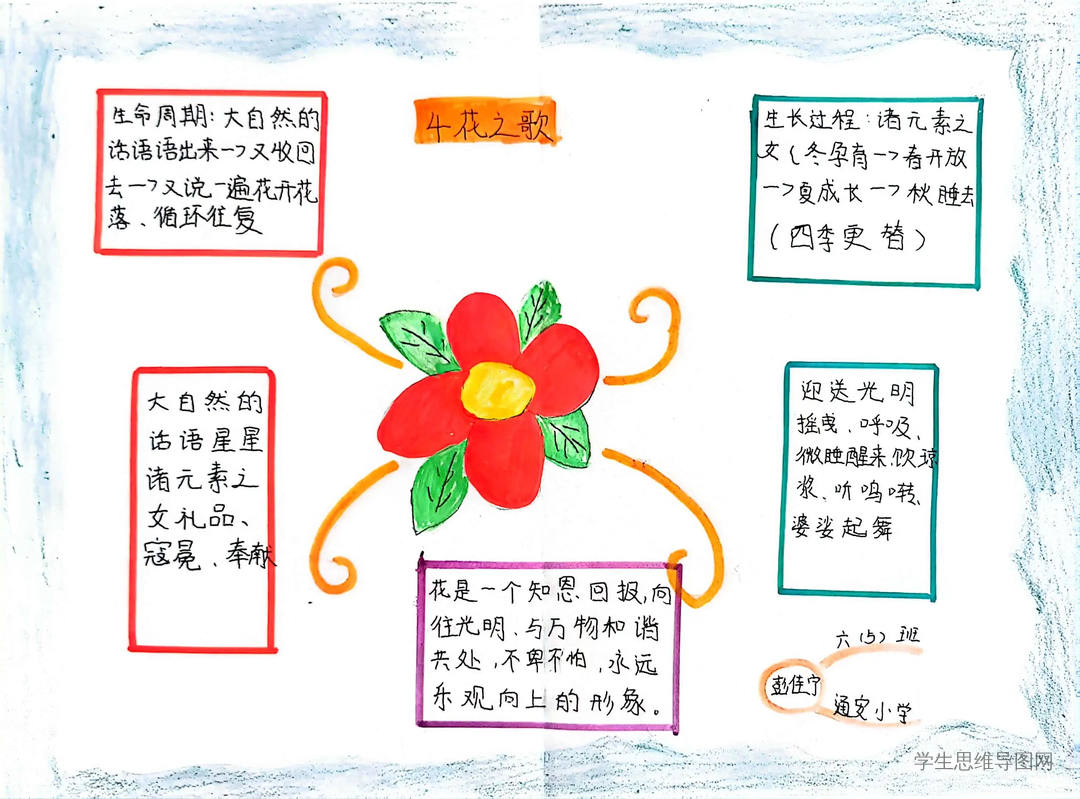 4花之歌
生命周期：大自然的
话语语出来一>又收回
去一>又说一遍花开花
落、循环往复
生长过程：诸元素之
女（冬孕育一>春开放
一>夏成长一>秋睡去
（四季更替）
大自然的
话语星星
诸元素之
女礼品、
冠冕、奉献
迎送光明
摇曳、呼吸、
微睡醒来、饮琼
浆、听鸣啭、
婆娑起舞
花是一个知恩回报,向
往光明、与万物和谐
共处,不卑不怕,永远
乐观向上的形象。
六(5)班
彭佳宁
通安小学
学生思维导图网